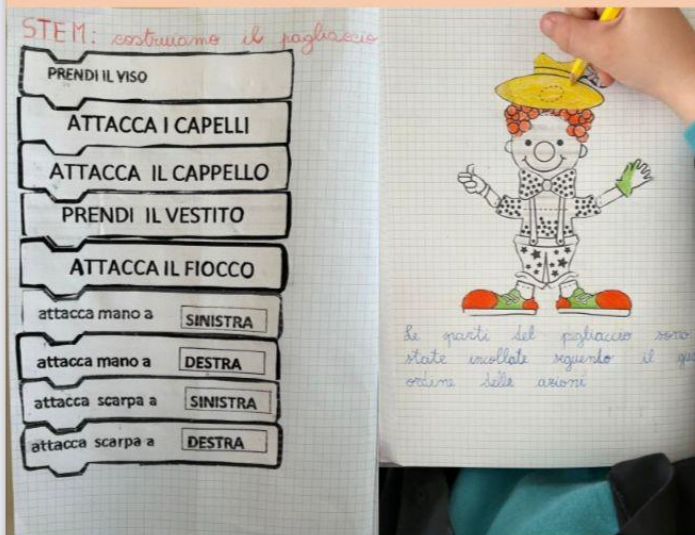 STEM: costruiamo il pagliaccio
PRENDI IL VISO
ATTACCA I CAPELLI
ATTACCA IL CAPPELLO
PRENDI IL VESTITO
ATTACCA IL FIOCCO
attacca mano a SINISTRA
attacca mano a DESTRA
attacca scarpa a SINISTRA
attacca scarpa a DESTRA
Le parti del pagliaccio sono
state incollate seguendo il
ordine delle azioni